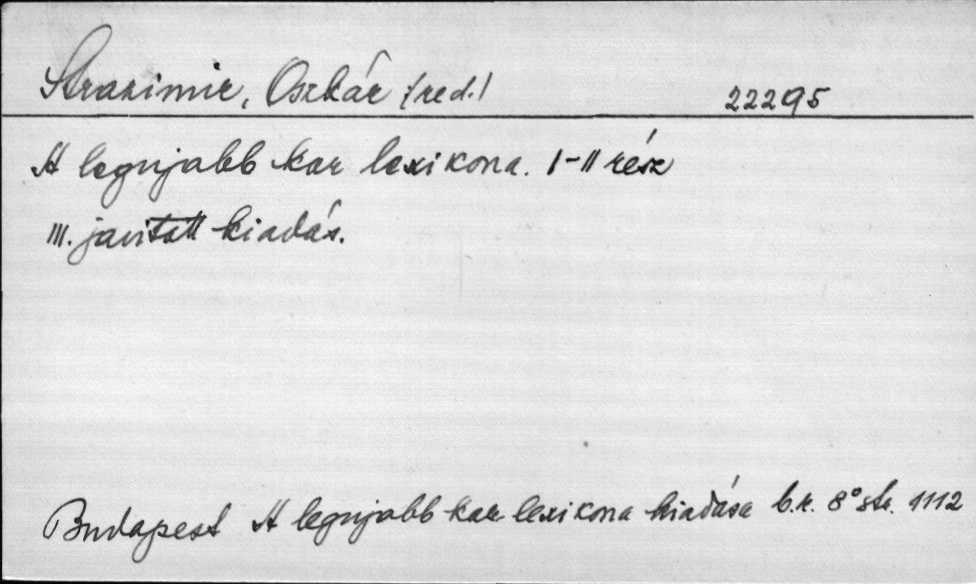 Strazimir, Oszkár (red.) 22295
A legujabb kor lexikona. I-II rész
III. javitott kiadás.
Budapest A legujabb kor lexikona kiadása b.r. 8° str. 1112